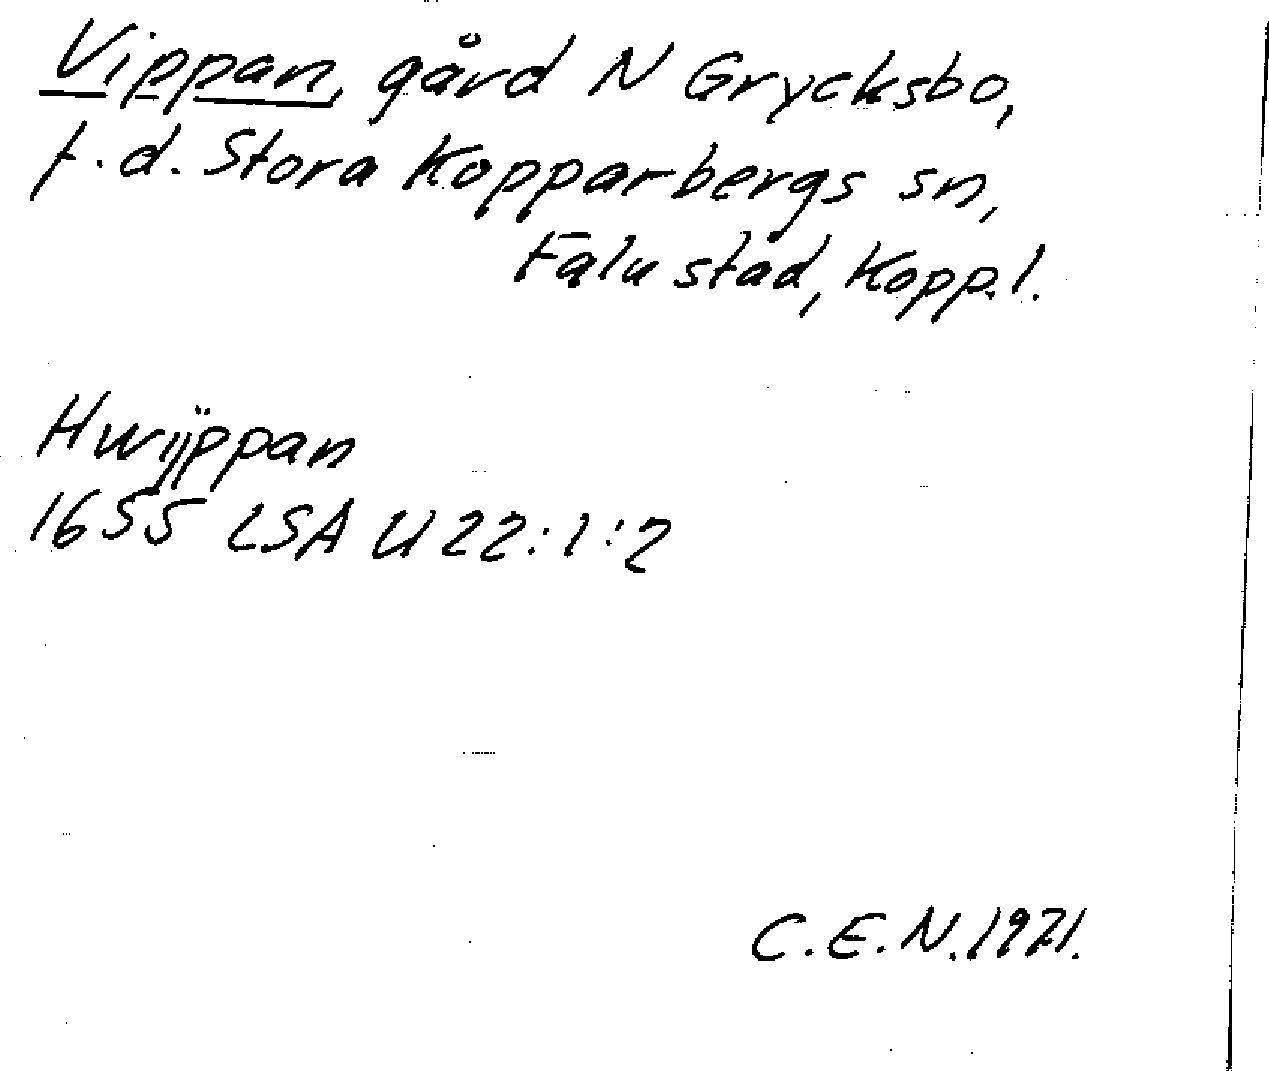 Vippan, gård N Grycksbo,
f.d. Stora Kopparbergs sn,
Falu stad, Kopp.l.
Hwijppan
1655 LSA U 22:1:2
C.E.N. 1971.